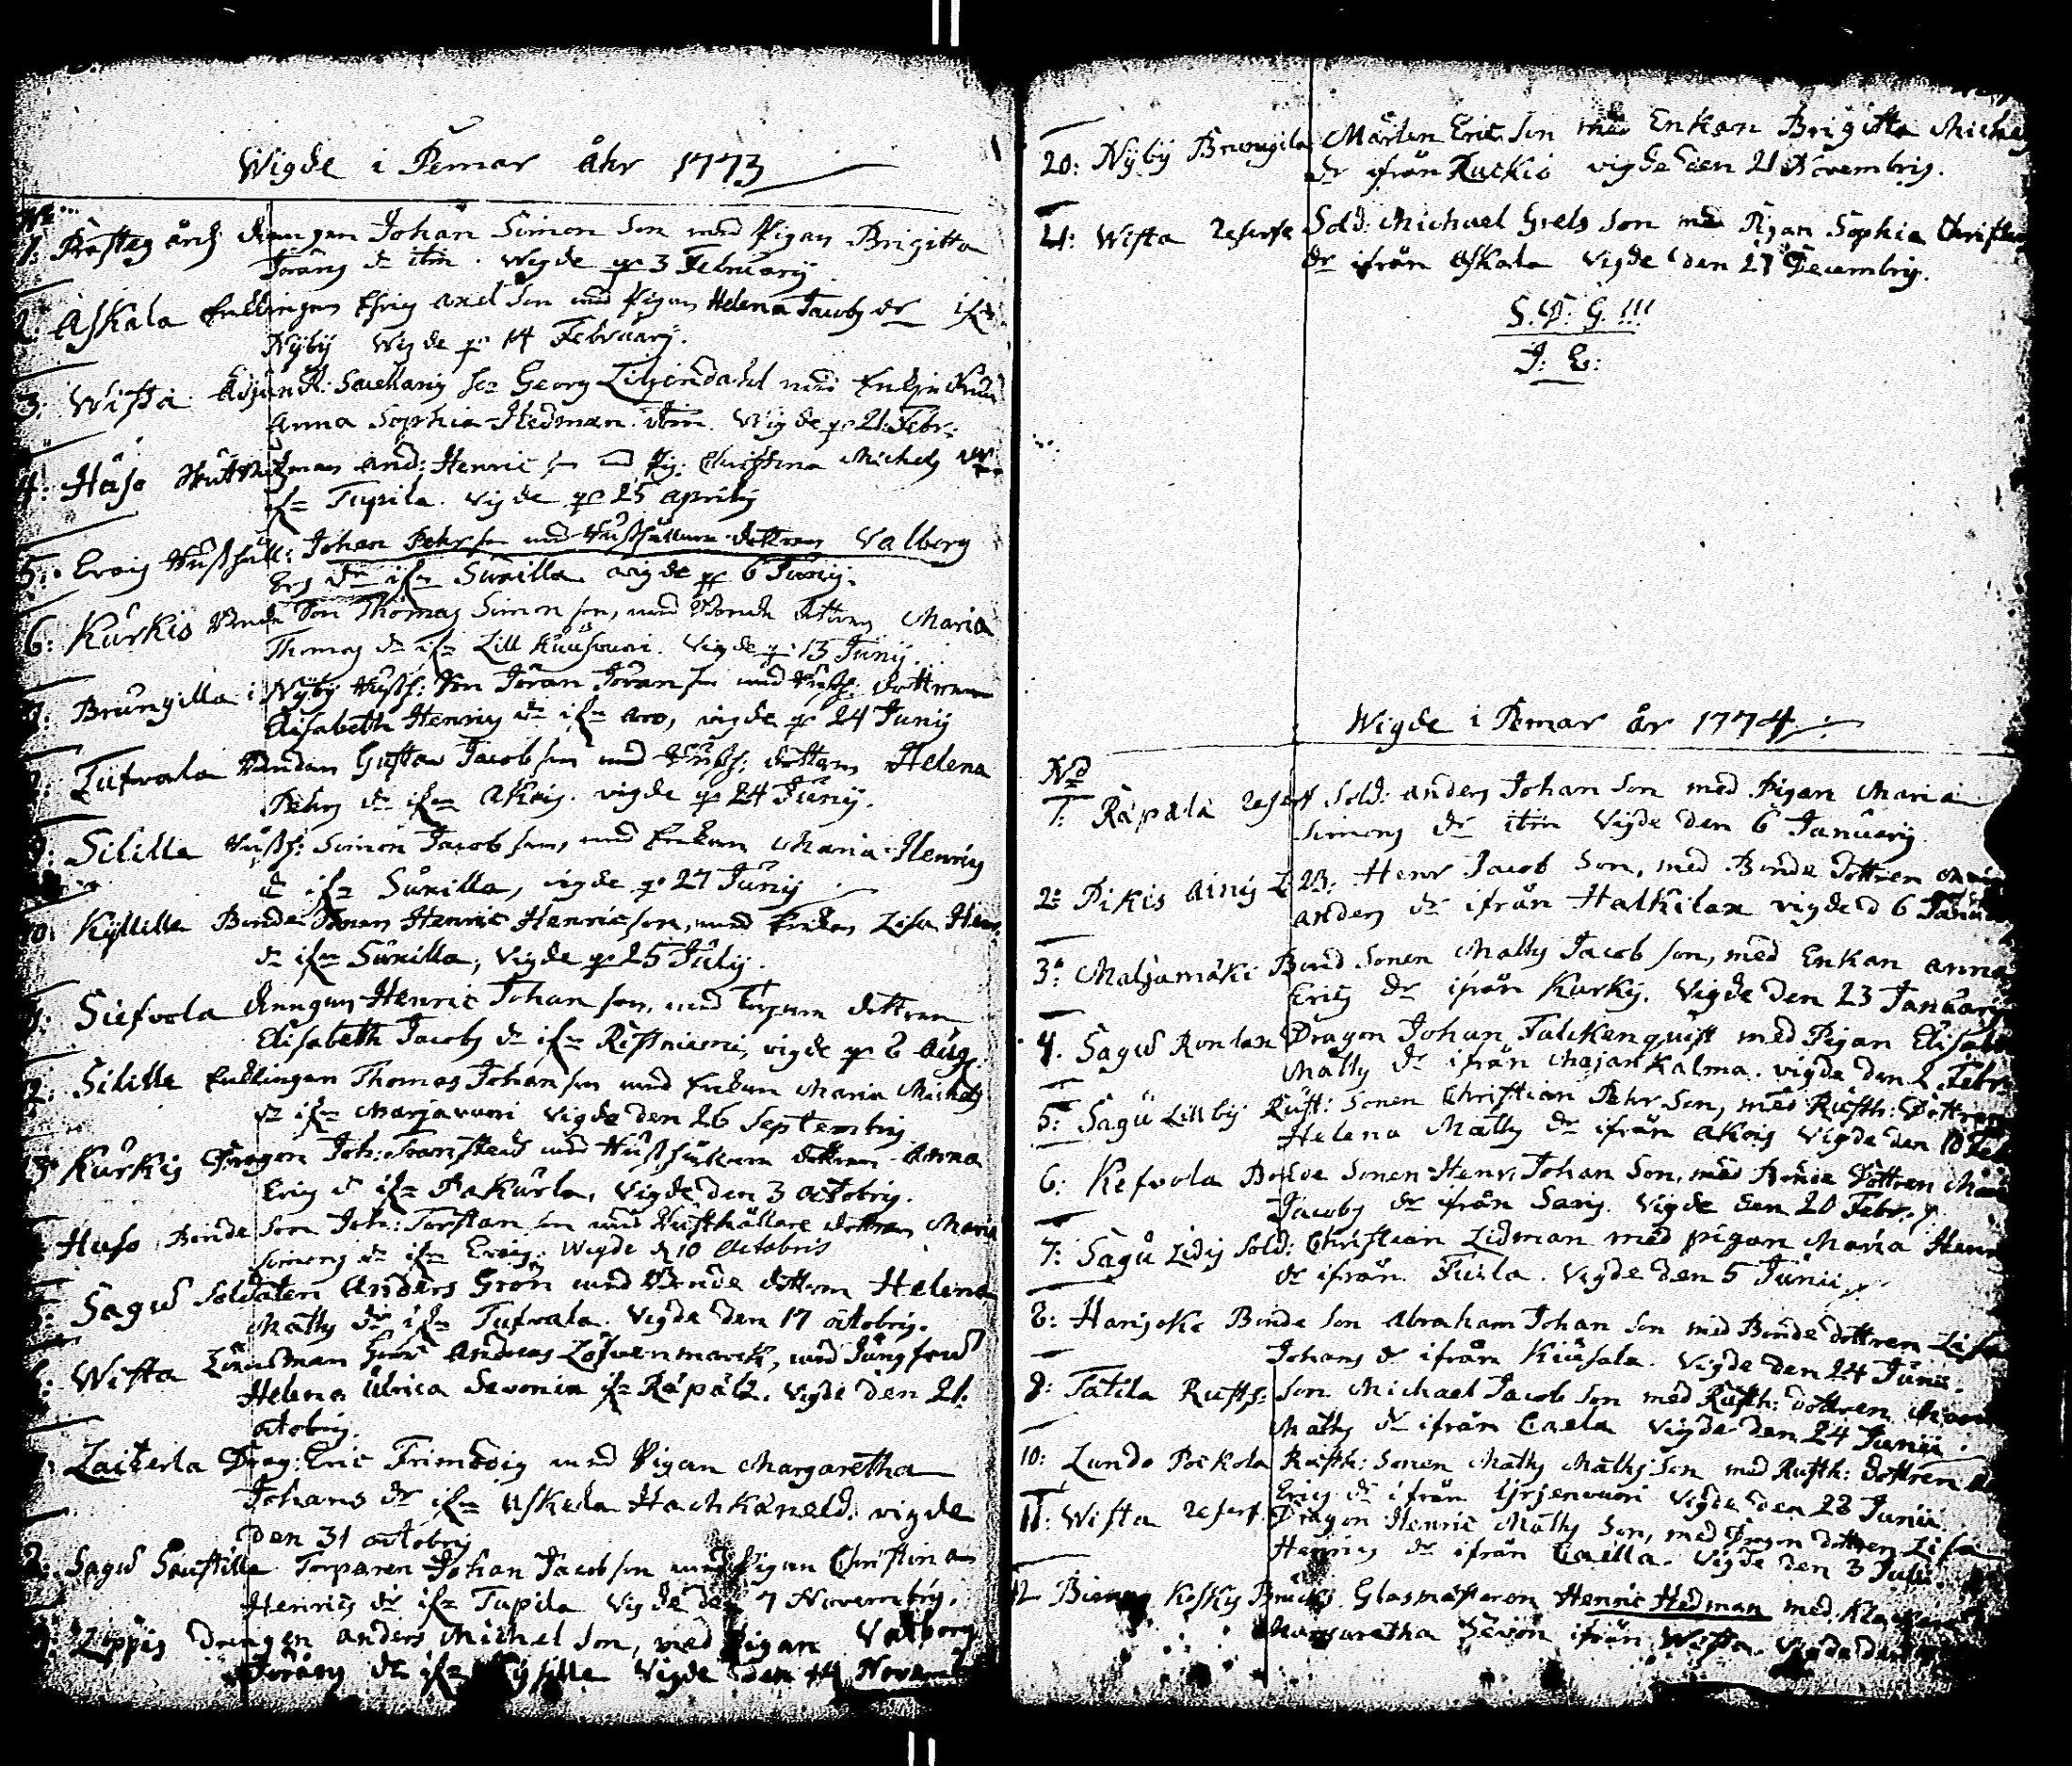 Wigde i Pemar åhr 1773
No
1: Drengen Johan Simon Son med Pigan Brigitta
Jörans dr itm. Wigde pr 3 February
2: Askala Enklingen axel Son med Pigan Helena Jacobs dr ifn
Nÿbÿ Wigde pr 14 February.
3: Wista Georg Liljendahl med
Anna Sophia Hedman itm. Wigde pr 21. Febr:
4: Huso And: Henric son med Pig: Christina Michels dr
ifn Tupila. Vigde pr 25 aprilis
5: Evois Husshåll: Johan Pehr son med Husshållare dottren Valborg
Ers dr ifn Sunilla. vigde pr 6 Junij.
6: Kurkis Bonde Son Thomas Simon son, med Bonde dottren Maria
Thomas dr ifn Lill Vigde pr 13 Junij.
7: Brungilla i Nÿbÿ Hussh: Son Jöran Jöran son med Hussh: dottren
Elisabeth Henrics dr ifn aro, vigde pr 24 Junij
Tufvala Bonden Gustav Jacob son med Hussh: dottern Helena
Pehrs dr ifn akois. vigde pr 24 Junij.
9: Silille Hussh: Simon Jacob son, med Enkan Maria Henrics
dr ifn Sunilla, vigde pr 27 Junij
Kÿllille Bonde Sonen Henric Henric son, med Enkan Lisa Henr.
dr ifn Sunilla, Vigde pr 25 Julij.
Siefvola drengen Henric Johan son, med Torpare dottren
Elisabeth Jacobs dr ifn Ristniemi, vigde pr 8 Aug.
2: Silille Enklingen Thomas Johan son med Enkan Maria Michels
dr ifn Marjavuori Vigde den 26 Septembris
Kurkis Dragon Joh: med Husshållare dottren Anna
Erics dr ifn Pakurla, Vigde den 3 octobris.
Huso Bonde Son Joh: son med Husshållare dottren Maria
Simons dr ifn Evois. Wigde d 10 Octobris
Sagu Soldaten Anders Grön med Bonde dottern Helena
Matts dr ifn Tufvala. Vigde den 17 octobris.
Wista Länsman Herr Andreas med Jungfru
Helena Ulrica Sevonia ifn Räpälä. Vigde den 21.
octobris.
Laiterla Drag: Eric med Pigan Margaretha
Johans dr ifn Askala vigde
den 31 octobris
Sagu Torparen Johan Jacob son med Pigan Christina
Henrics dr ifn Tupila Vigde den 7 Novembris.
Lippis Drengen anders Michel Son, med Pigan Valborg
Jörans dr ifn Vigde den 14 Novemb
20: Nÿbÿ Brungila Mårten Eric Son med Enkan Brigitta Michels
dr ifrån Kurkis vigde den 21 Novembris.
21: Wista Reserfe Sold: Michael Grels Son med Pigan Sophia
dr ifrån Askala Vigde den 27 Decembris.
S. D: G. !!!
J: E:
Wigde i Pemar år 1774
No
1: Räpälä Reserf Sold: anders Johan Son med Pigan Maria
Simons dr itm Vigde den 6 January
2: Pikis Henr Jacob Son, med Bonde dottren
anders dr ifrån Halkilax vigde d 6
3: Maljamäki Bond Sonen Matts Jacob son, med Enkan anna
Erics dr ifrån Kurkis. Vigde den 23 January
4. Sagu Ronlax Dragon Johan Falckenquist med Pigan Elisabe
Matts dr ifrån Majankalma. vigde den 2 Febr
5: Sagu Lillbÿ Rust: Sonen Christian Pehr Son, med Rusth: Dottren
Helena Matts dr ifrån akois Vigde den 10 Feb
6: Kefvola Bonde Sonen Henr. Johan Son, med Bonde Dottren
Jacobs dr från Saris. Vigde den 20 Febr.
7: Sagu Sold: Christian Lidman med pigan Maria Henr
dr ifrån Vigde den 5 Junii
8: Hanjoki Bonde Son Abraham Johan Son med Bonde dottren Lisa
Johans dr ifrån Kiusala. Vigde den 24 Junii.
9: Tätila Rusth: Son Michael Jacob Son med Rusth: dottren
Matts dr ifrån Caela Vigde den 24 Junii.
10: Lundo Pockola Rusth: Sonen Matts Matts Son med Rusth: Dottren
Erics dr ifrån Vigde den 28 Junii.
11: Wista Reserf. Dragon Henric Matts Son, med Dragon dottren Lisa
Henrics dr ifrån Caella. Vigde den 3
12 Kosky Bruck: Glasmästaren Henric Hedman med
Margaretha Sevon ifrån Wista. Vigde den